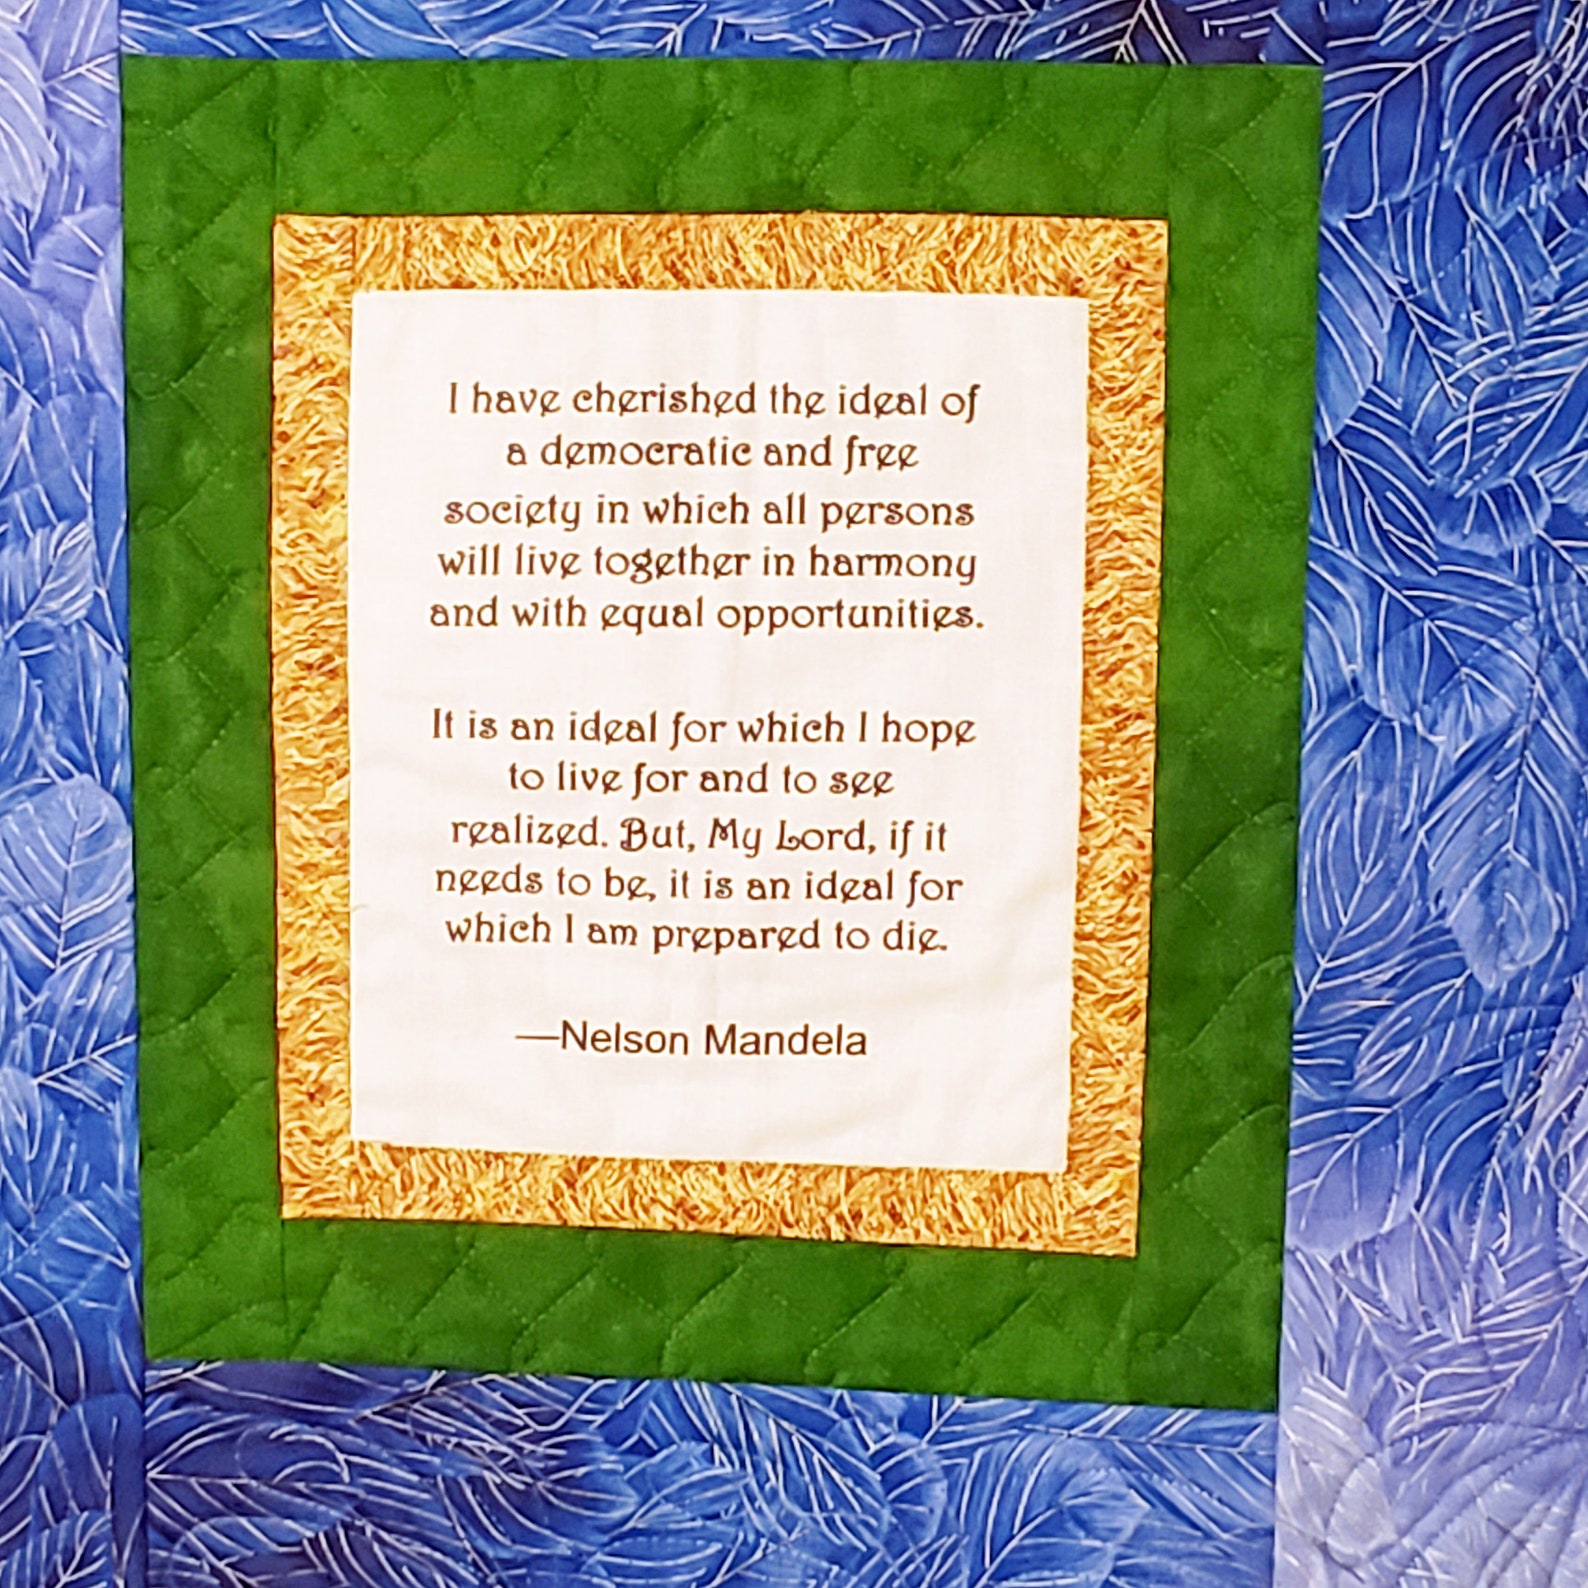 I have cherished the ideal of
a democratic and free
society in which all persons
will live together in harmony
and with equal opportunities.
It is an ideal for which I hope
to live for and to see
realized. But, My Lord, if it
needs to be, it is an ideal for
which I am prepared to die.
—Nelson Mandela